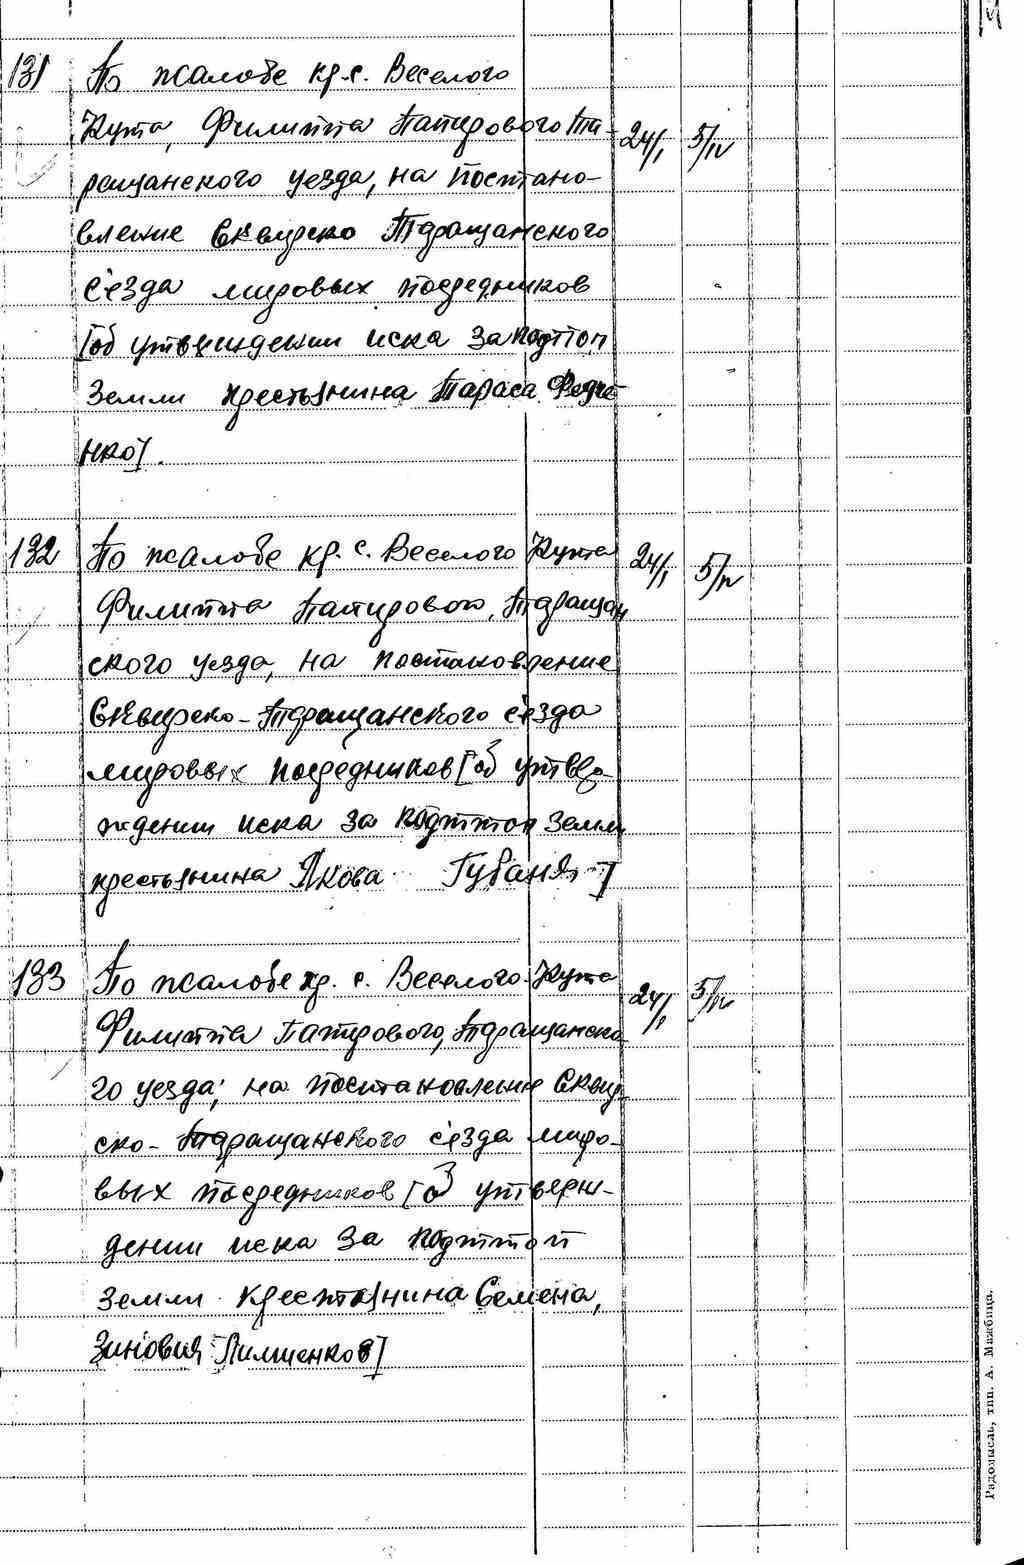 131 По жалобе кр. с. Веселого
Кута, Филиппа Папирового Та-
ращанского уезда, на постано- 24/I 5/IV
вление Сквирско Таращанского
с'езда мировых посредников
[об утверждении иска за подтоп
земли крестьянина Тараса Федче
нко].
132 По жалобе кр. с. Веселого Кута 24/I 5/IV
Филиппа Папирового, Таращан
ского уезда, на постановление
Сквирско-Таращанского с'езда
мировых посредников [об утвер-
ждении иска за подтоп земли
крестьянина Якова Губаня]
133 По жалобе кр. с. Веселого Кута 24/I 5/IV
Филиппа Папирового, Таращанско
го уезда, на постановление Сквир-
ско-Таращанского с'езда миро-
вых посредников [об утверж-
дении иска за подтоп
земли крестьянина Семена,
Зиновия
Радомысль, тип. А. Мажбица.